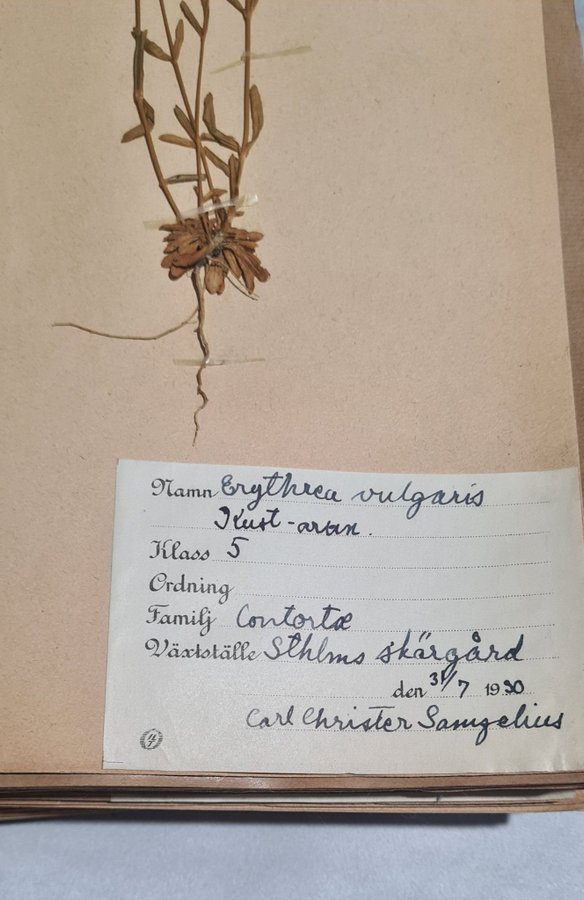 Namn Erythrea vulgaris
Kust-arun.
Klass 5
Ordning
Familj Contortæ
Växtställe Sthlms skärgård
den 31/7 1930
Carl Christer Samzelius